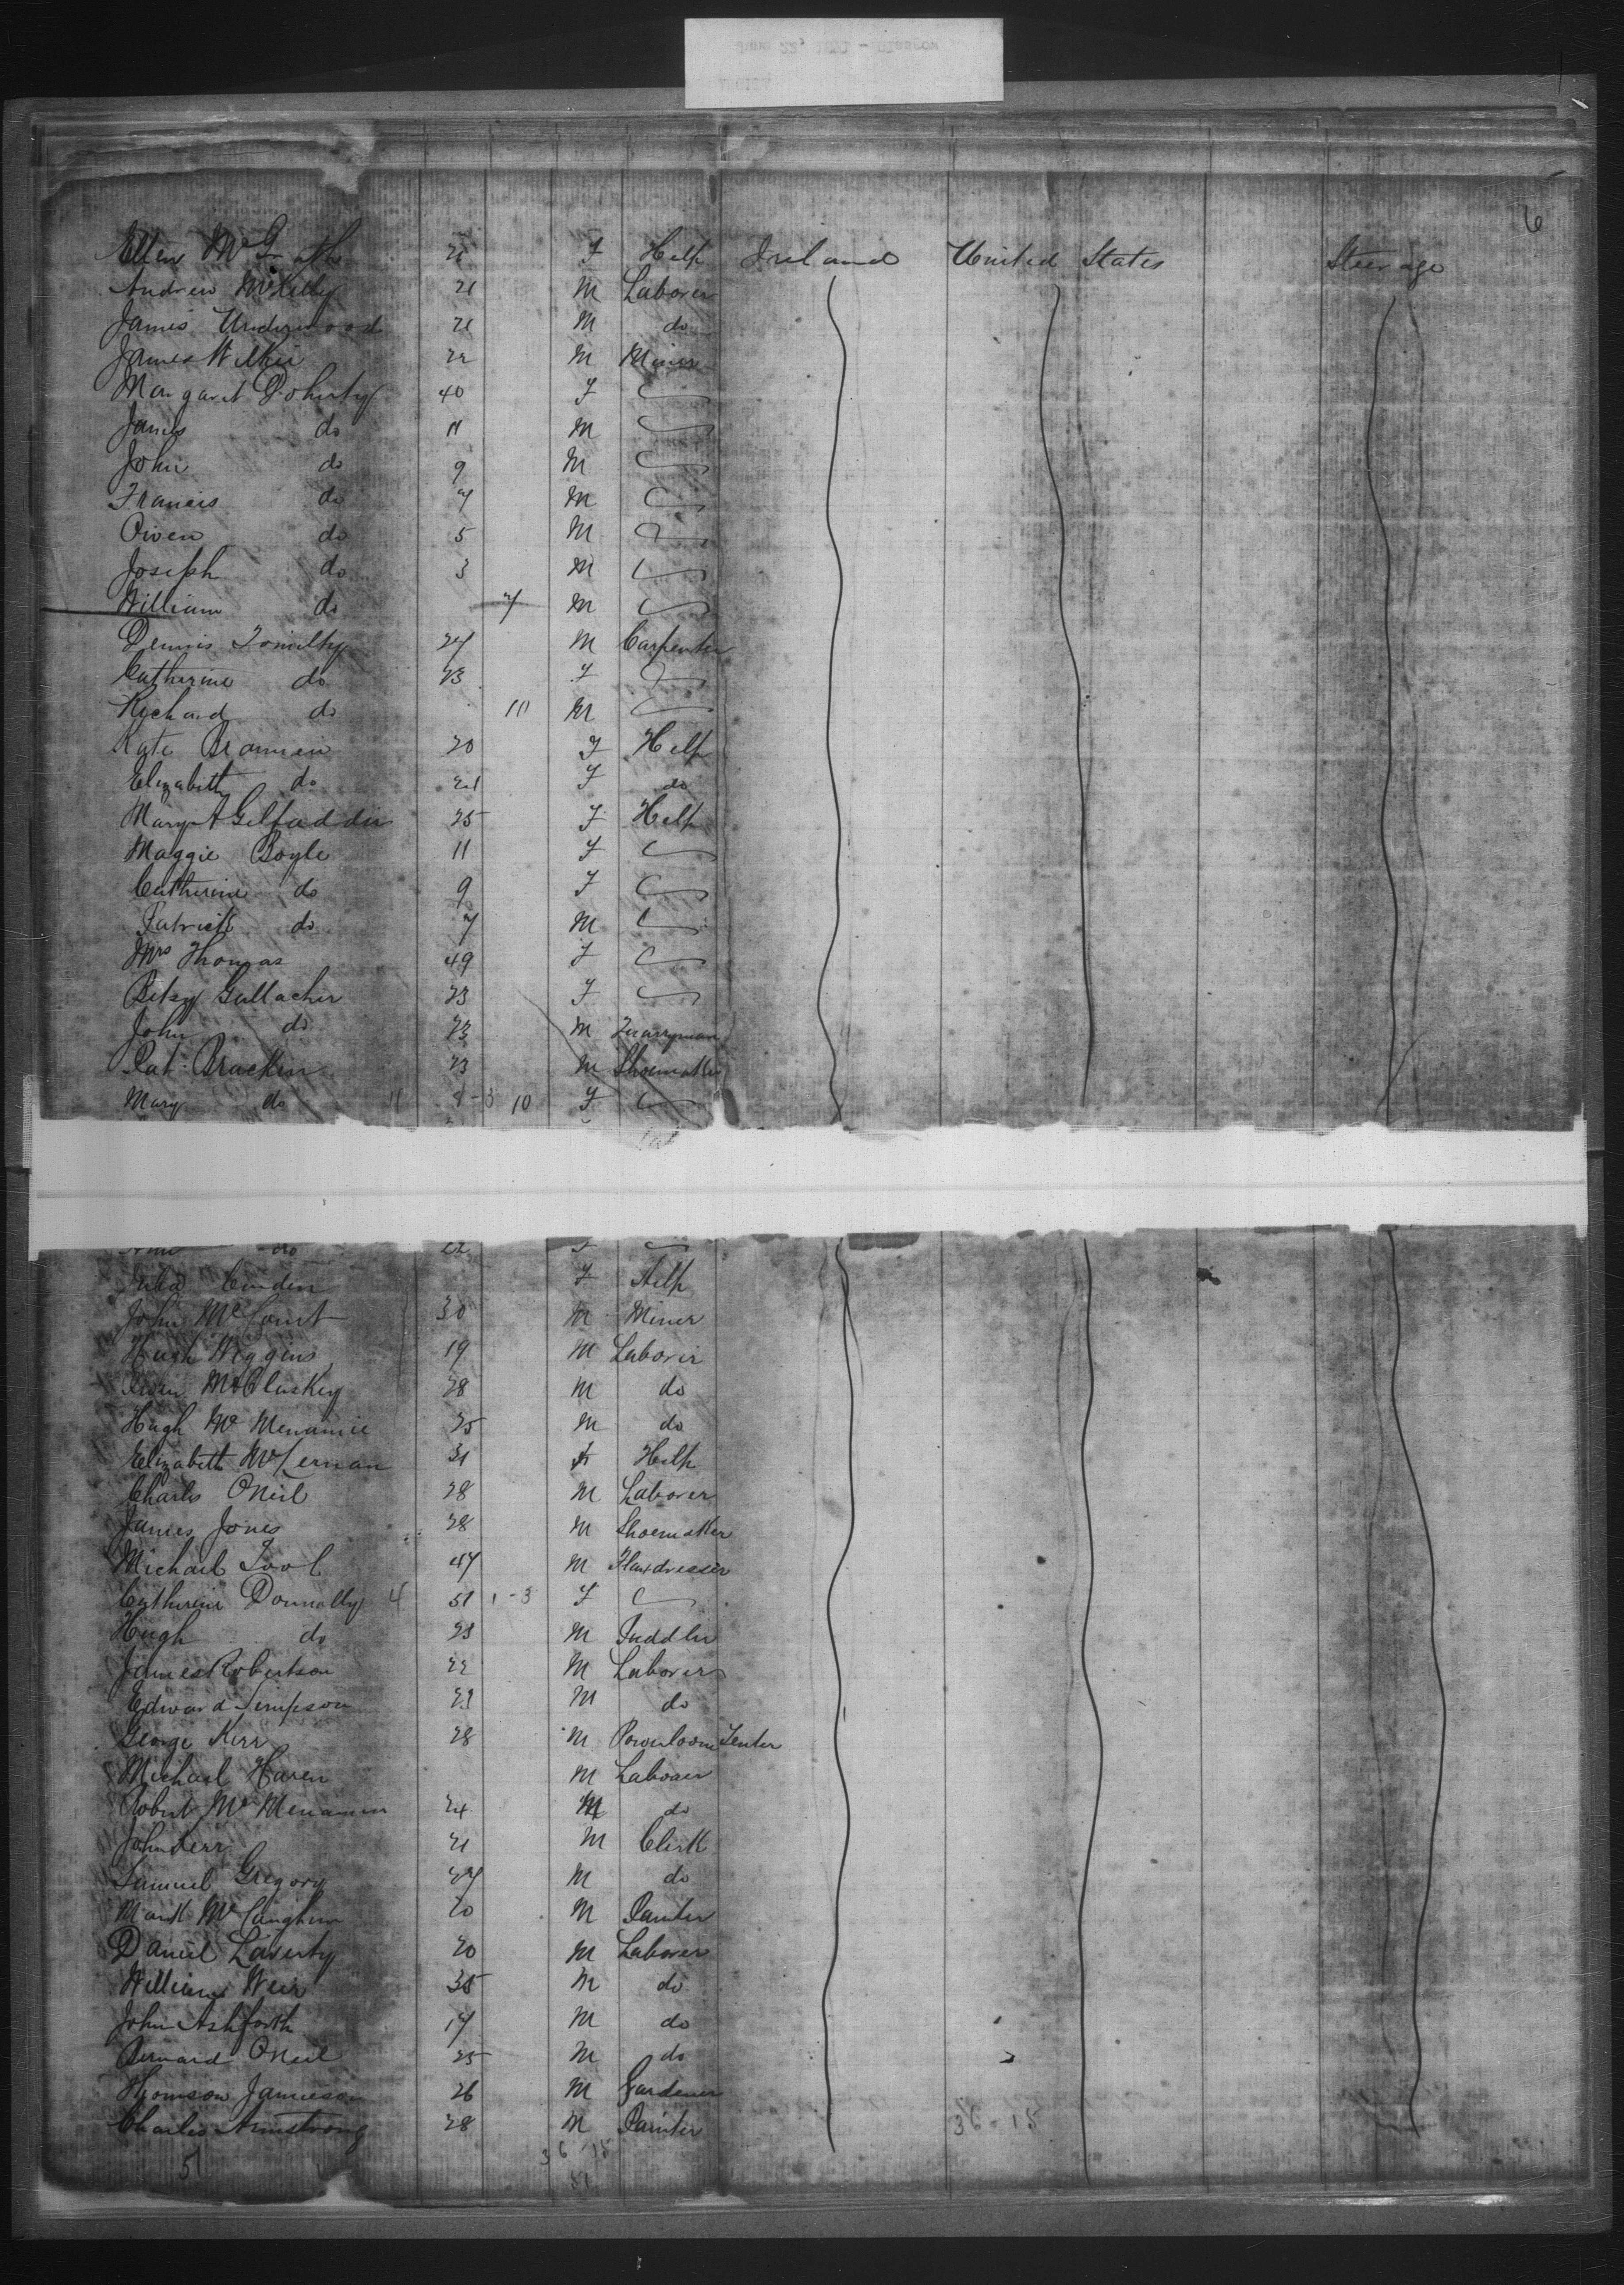 6
Ellen McGrath 21 F Help Ireland United States Steerage
Andrew McKelly 21 M Laborer
James Underwood 21 M do
James Wilkie 22 M Miner
Margaret Dohirty 40 F
James do 11 M
John do 9 M
Francis do 7 M
Owen do 5 M
Joseph do 3 M
William do 7 M
Dennis Tomilty 27 M Carpenter
Catherine do 23 F
Richard do 10 M
Kate Brannen 20 F Help
Elizabeth do 21 F do
Mary A Gilfadder 25 F Help
Maggie Boyle 11 F
Catherine do 9 F
Patrick do 7 M
Mrs Thomas 49 F
Betsy Gallacher 23 F
John do 23 M Quarryman
Pat Bracken 23 M Shoemaker
Mary do 11 8-3 10 F
do 22 F
Julia F Help
John McCourt 30 M Miner
Hugh Wiggins 19 M Laborer
Owen McCluskey 28 M do
Hugh McMenamie 25 M do
Elizabeth McLernan 31 F Help
Charles ONeil 28 M Laborer
James Jones 28 M Shoemaker
Michael Tool 47 M Flaxdresser
Catherine Donnolly 4 51 1-3 F
Hugh do 23 M Puddler
James Robertson 22 M Laborer
Edward Simpson 23 M do
George Kerr 28 M Powerloom Tenter
Michael Haren M Laborer
Robert McMenamin 24 M do
John Kerr 21 M Clerk
Samuel Gregory 27 M do
Mark McLaughin 20 M Painter
Daniel Laverty 20 M Laborer
William Weir 35 M do
John Ashforth 17 M do
Bernard ONeil 25 M do
Thomson Jamieson 26 M Gardener
Charles Armstrong 28 M Painter
36-15
36 15
51
51